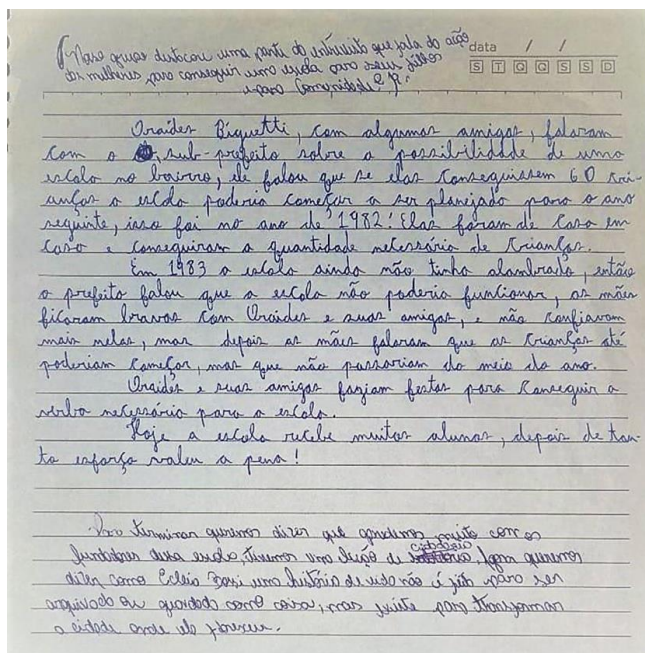 Nosso grupo destacou uma parte da entrevista que fala da ação
das mulheres para conseguir uma escola para seus filhos
e para Comunidade E. P.
data / /
S T Q Q S S D
Oraides Biguetti, com algumas amigas, falaram
com o sub-prefeito sobre a possibilidade de uma
escola no bairro, ele falou que se elas conseguissem 60 cri-
anças a escola poderia começar a ser planejada para o ano
seguinte, isso foi no ano de 1982! Elas foram de casa em
casa e conseguiram a quantidade necessária de crianças.
Em 1983 a escola ainda não tinha alambrado, então
o prefeito falou que a escola não poderia funcionar, as mães
ficaram bravas com Oraides e suas amigas, e não confiavam
mais nelas, mas depois as mães falaram que as crianças até
poderiam começar, mas que não passariam do meio do ano.
Oraides e suas amigas faziam festas para conseguir a
verba necessária para a escola.
Hoje a escola recebe muitos alunos, depois de tan-
to esforço valeu a pena!
Pra terminar queremos dizer que aprendemos muito com os
fundadores dessa escola, tivemos uma lição de cidadania, queremos
dizer como Ecleia Bosi, uma história de vida não é feita para ser
arquivada ou guardada como coisa, mas existe para transformar
a cidade onde ela floresceu.